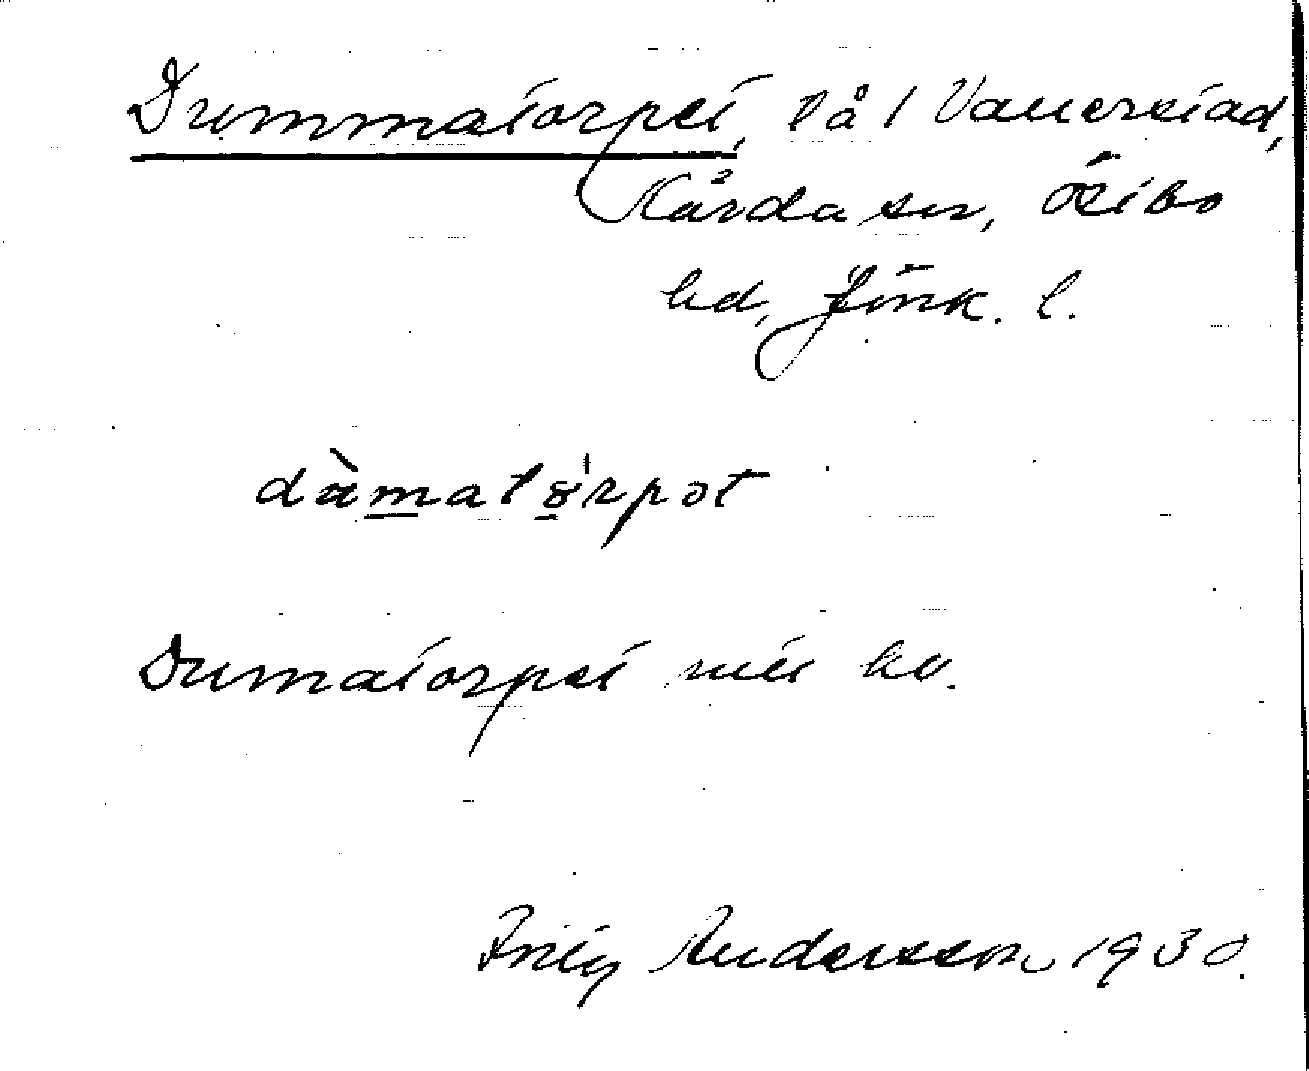 Dummatorpet, på / Vallerstad,
Kärda sn, Östbo
hd, Jönk. l.
dàmatørpət
Dumatorpet
Fritz Andersson 1930.